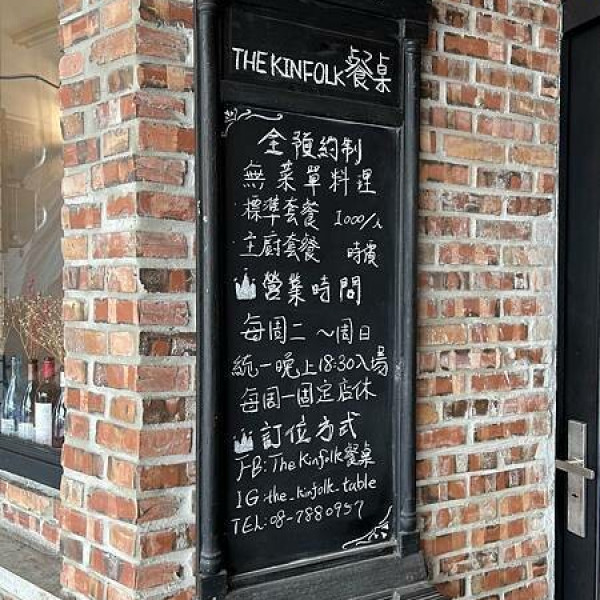 THE KINFOLK餐桌
全預約制
無菜單料理
標準套餐 1000/人
主廚套餐 時價
營業時間
每周二~周日
統一晚上18:30入場
每周一固定店休
訂位方式
FB:The Kinfolk餐桌
IG:the_kinfolk_table
TEL:08-7880957